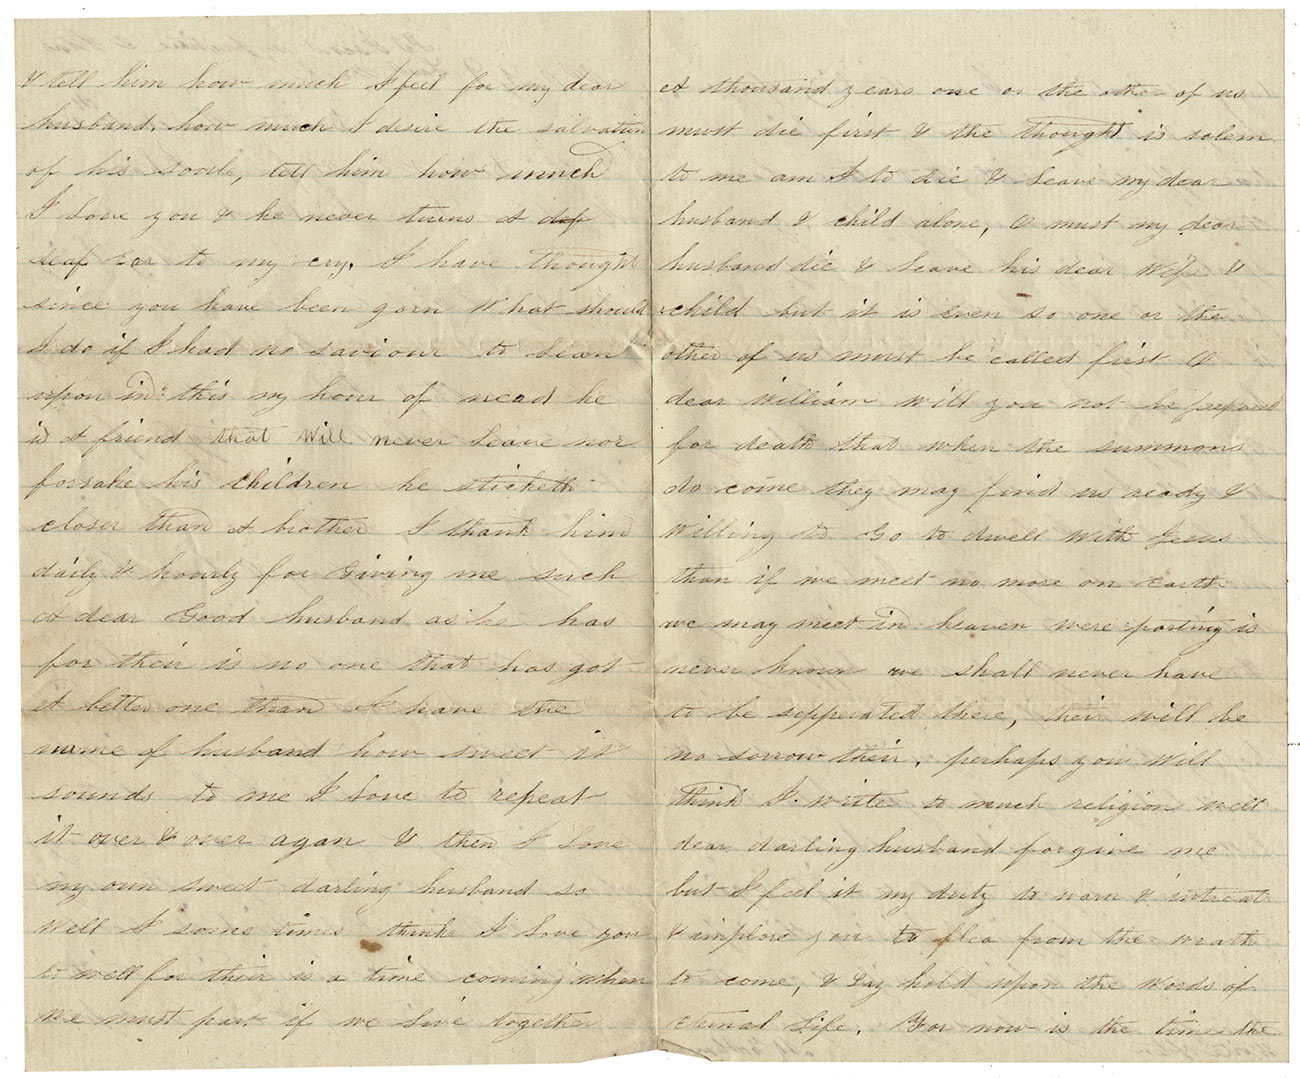 & tell him how much I feel for my dear
husband, how much I desire the salvation
of his soul, tell him how much
I love you & he never turns A def
deaf ear to my cry. I have thought
since you have been gorn What should
I do if I had no saviour to lean
upon in this my hour of nead he
is A friend that Will never leave nor
forsake his children he sticketh
closer than A brother I thank him
daily & hourly for Giving me such
A dear Good husband as he has
for their is no one that has got
A better one than I have the
name of husband how sweet it
sounds to me I love to repeat
it over & over agan & then I love
my own sweet darling husband so
Well I some times think I love you
to well for their is a time coming when
We must part if we live together
A thousand years one or the other of us
must die first & the thought is solem
to me am I to die & leave my dear
husband & child alone, O must my dear
husband die & leave his dear Wife &
child but it is even so one or the
other of us must be called first O
dear William Will you not be prepared
for death that when the summons
do come they may find us ready &
Willing to Go to dwell With Jesus
than if we meet no more on Earth
we may meet in heaven were parting is
never known we shall never have
to be sepperated there, their will be
no sorrow their, perhaps you Will
think I write to much religion well
dear darling husband forgive me
but I feel it my duty to warn & intreat
& implore you to flea from the wrath
to come, & Lay hold upon the Words of
eternal Life. For now is the time the